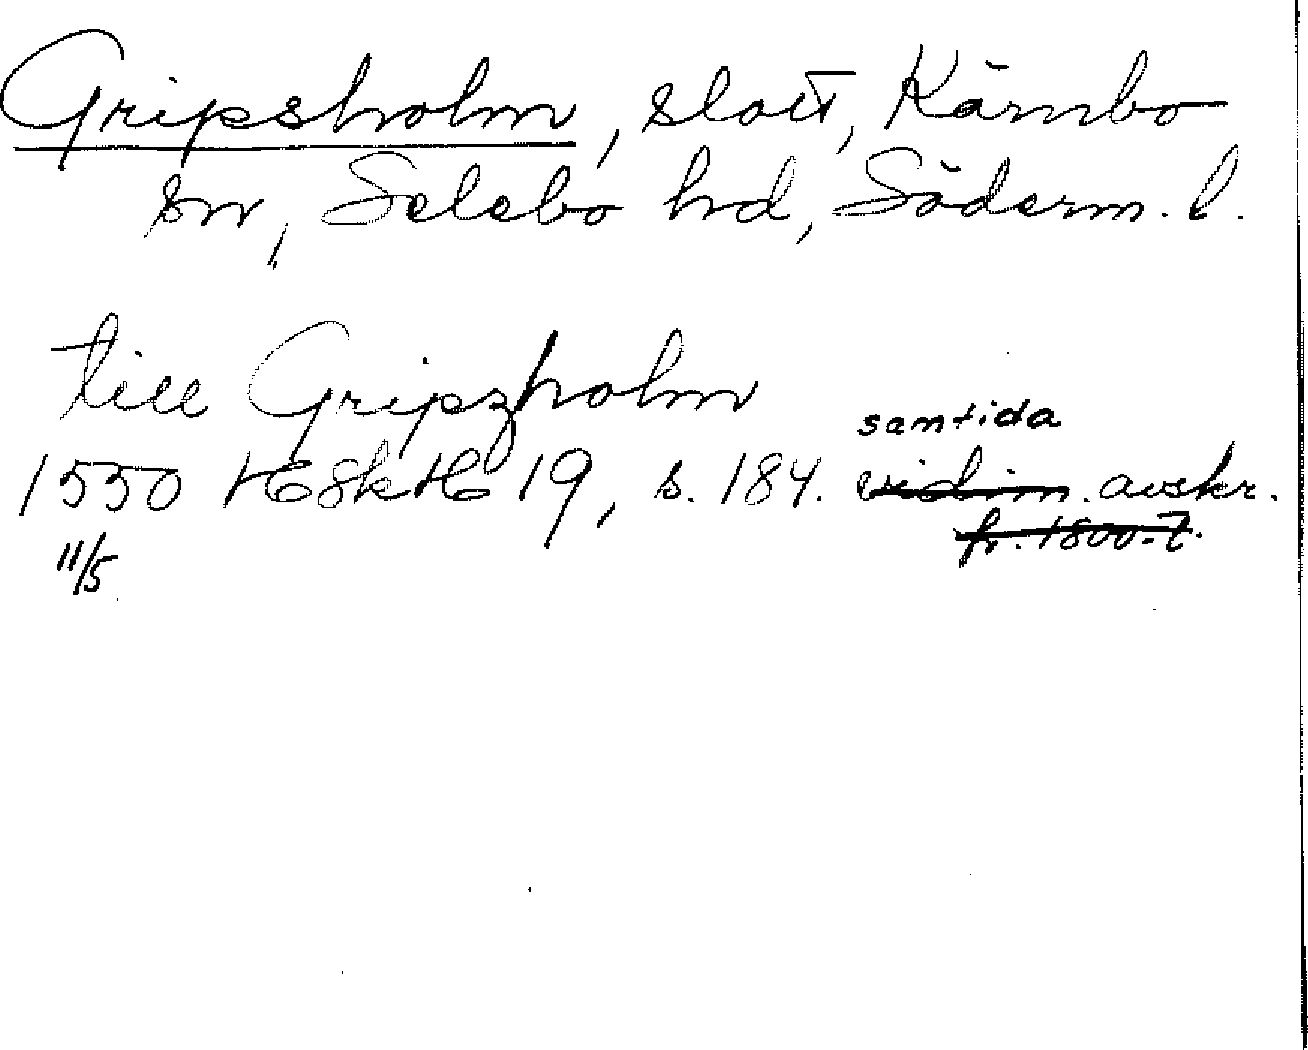 Gripsholm, slott, Kärnbo
sn, Selebo hd, Söderm. l.
till Gripzholm
samtida
1550 HSkH 19, s. 184. vidim. avskr.
11/5 fr. 1800-t.